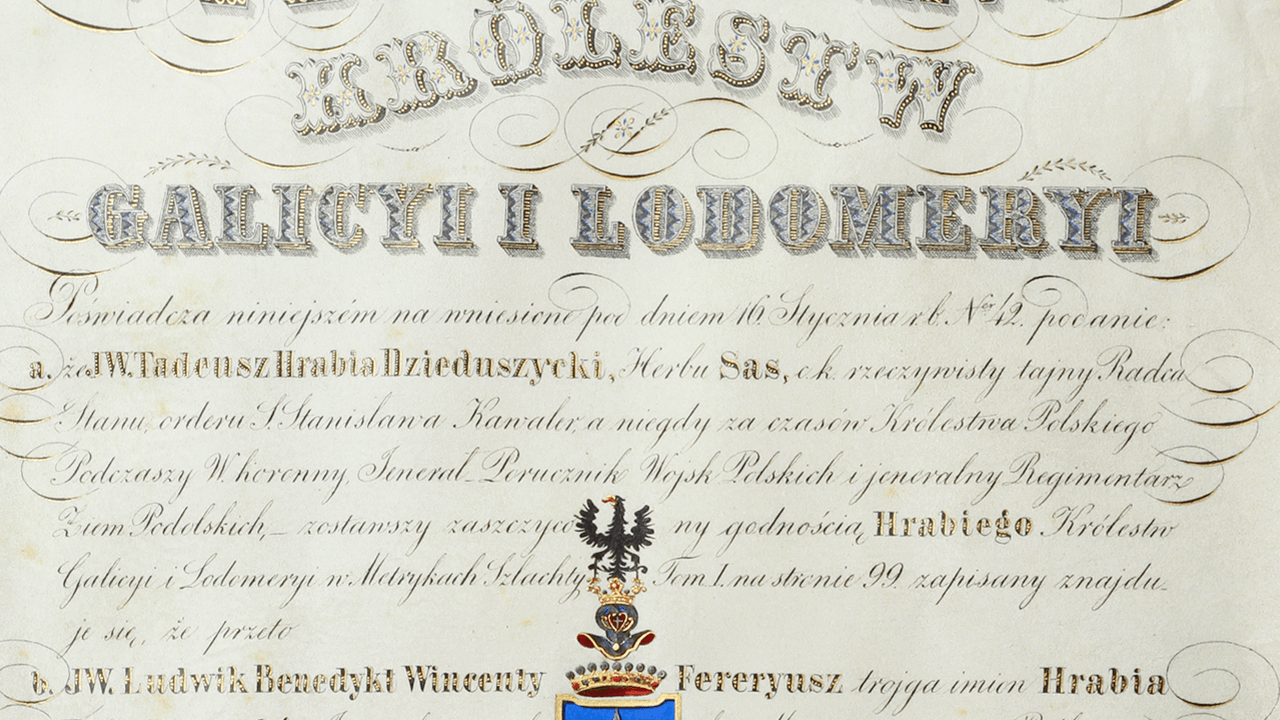 KRÓLESTW
GALICYI I LODOMERYI
Poświadcza niniejszém na wniesione pod dniem 16. Stycznia r. b. Ner 42. podanie:
a. że JW. Tadeusz Hrabia Dzieduszycki, Herbu Sas, c. k. rzeczywisty tajny Radca
Stanu, orderu S. Stanisława Kawaler, a niegdy za czasów Królestwa Polskiego
Podczaszy W. koronny, Jenerał-Porucznik Wojsk Polskich i jeneralny Regimentarz
Ziem Podolskich, – zostawszy zaszczyco ny godnością Hrabiego Królestw
Galicyi i Lodomeryi w Metrykach Szlachty Tom I. na stronie 99 zapisany znajdu-
je się, że przeto
b. JW. Ludwik Benedykt Wincenty Fereryusz trojga imion Hrabia